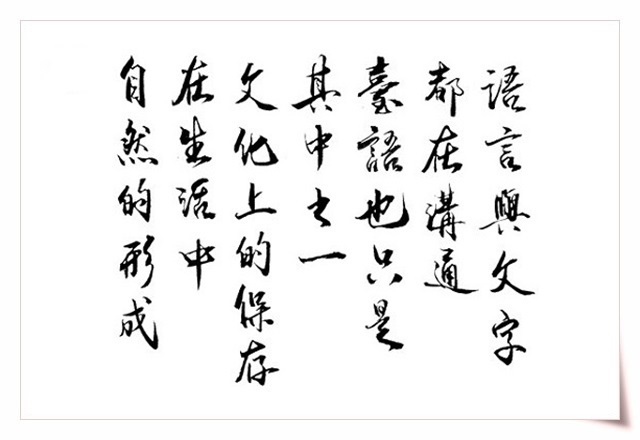 語言與文字
都在溝通
臺語也只是
其中之一
文化上的保存
在生活中
自然的形成